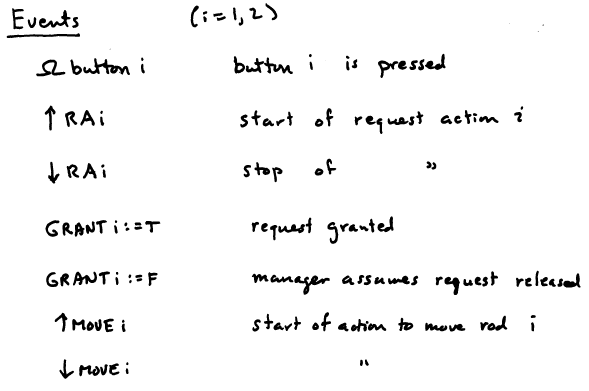 Events (i=1,2)
Ω button i button i is pressed
↑ RAi start of request action i
↓ RAi stop of "
GRANT i:=T request granted
GRANT i:=F manager assumes request released
↑ MOVE i start of action to move rod i
↓ MOVE i "